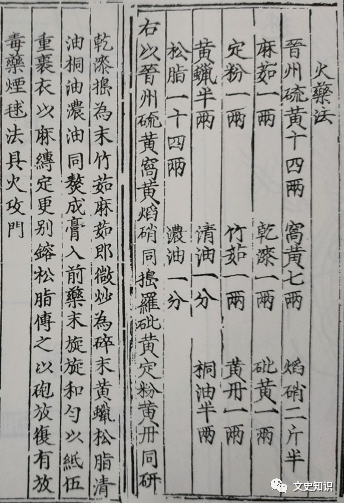 火藥法
晉州硫黃十四兩 窩黃七兩 焰硝二斤半
麻茹一兩 乾漆一兩 砒黃一兩
定粉一兩 竹茹一兩 黃丹一兩
黃蠟半兩 清油一分 桐油半兩
松脂一十四兩 濃油一分
右以晉州硫黃窩黃焰硝同搗羅砒黃定粉黃丹同研
乾漆搗為末竹茹麻茹即微炒為碎末黃蠟松脂清
油桐油濃油同熬成膏入前藥末旋旋和勻以紙伍
重裹衣以麻縛定更別鎔松脂傅之以砲放復有放
毒藥煙毬法具火攻門
文史知识